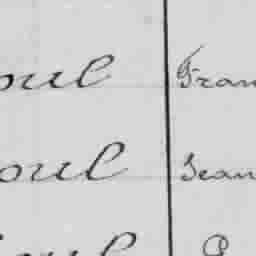 oul Fran
oul Jean
oul